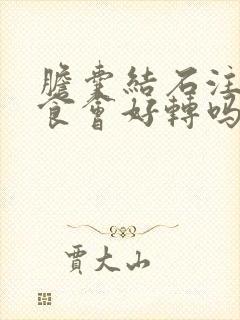 膽囊結石注
食會好轉嗎
賈大山